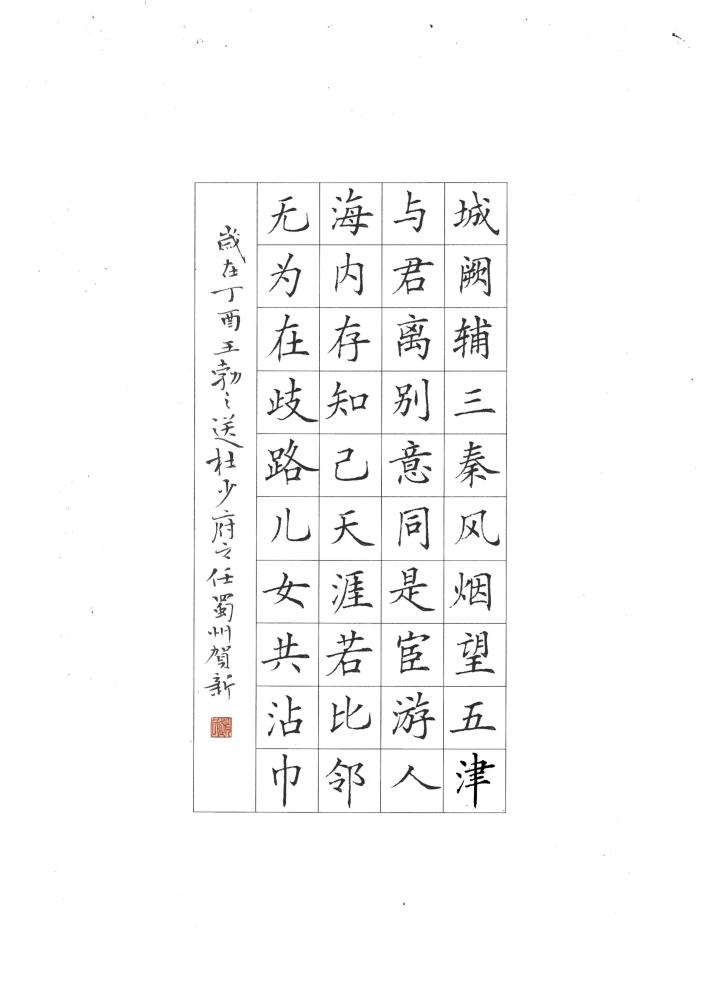 城阙辅三秦风烟望五津
与君离别意同是宦游人
海内存知己天涯若比邻
无为在歧路儿女共沾巾
岁在丁酉王勃之送杜少府之任蜀州贺新